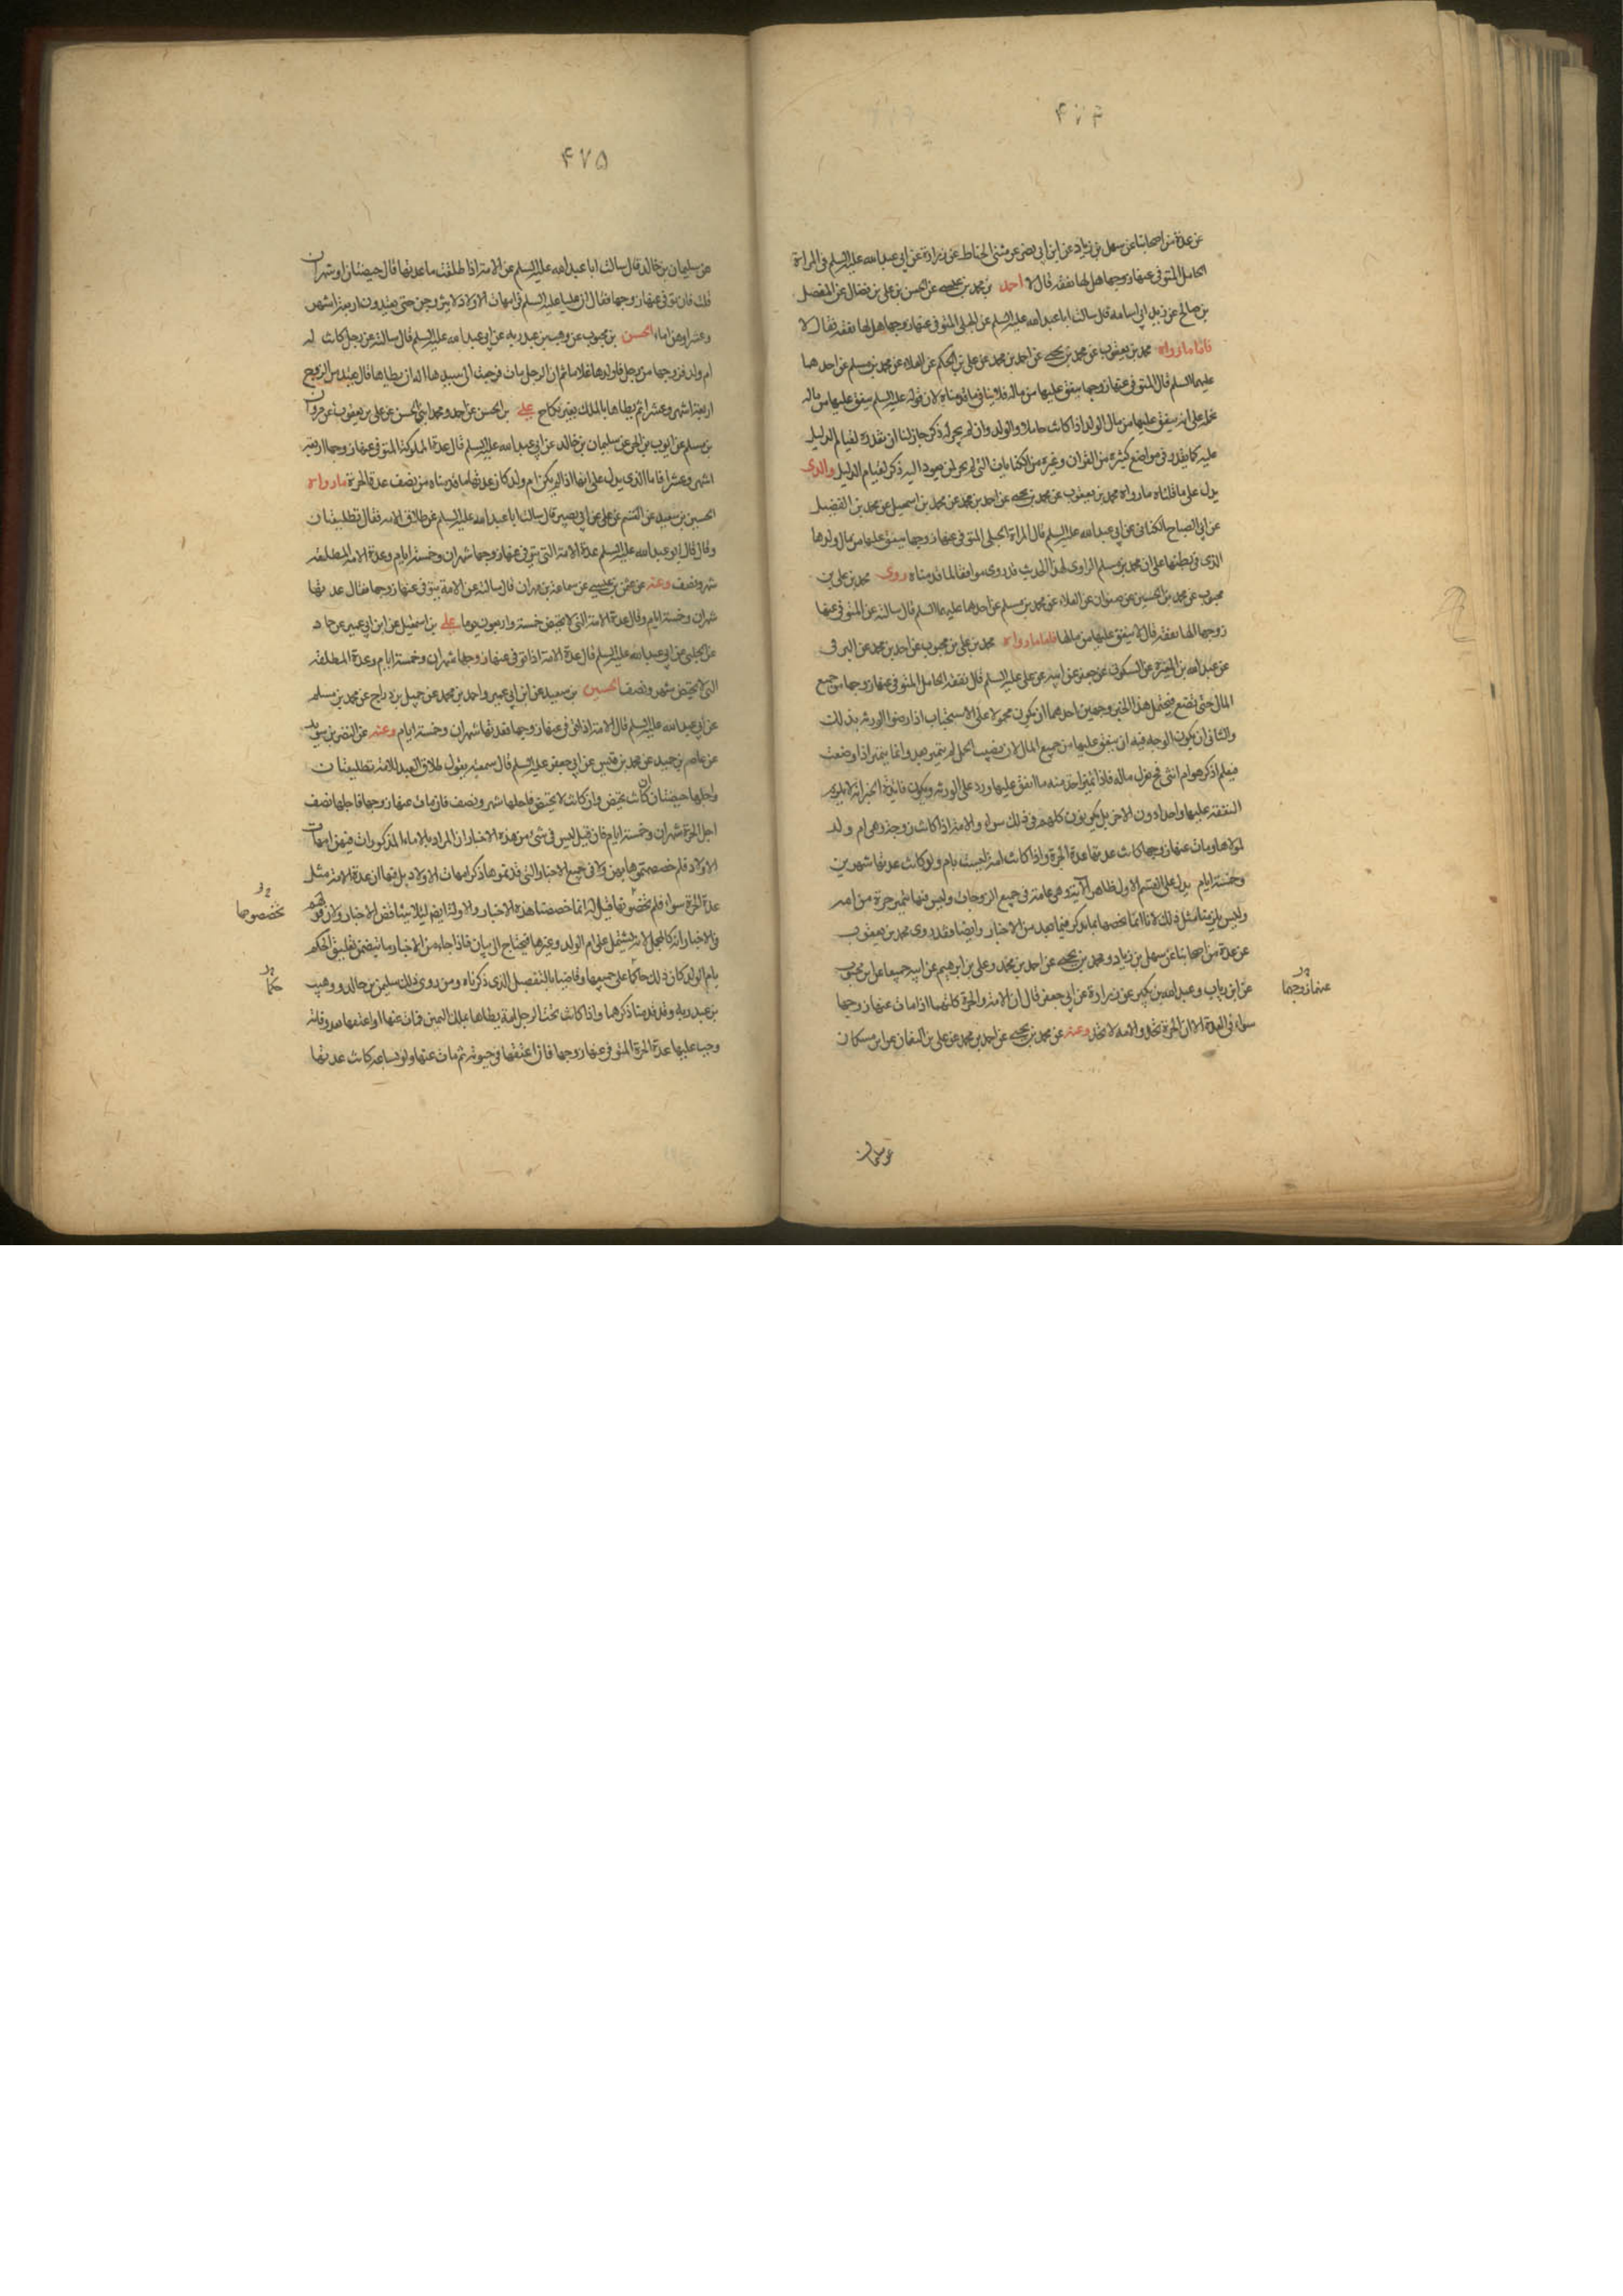 ۴۷۴
عن عدة من اصحابنا عن سهل بن زياد عن ابن ابي نصر عن مثنى الحناط عن زرارة عن ابي عبد الله عليه السلم في المراة
الحامل المتوفى عنها زوجها هل لها نفقة قال لا احمد بن محمد بن عيسى عن الحسن بن علي بن فضال عن المفضل
بن صالح عن زيد ابي اسامة قال سالت ابا عبد الله عليه السلم عن الحبلى المتوفى عنها زوجها هل لها نفقة فقال لا
فاما ما رواه محمد بن يعقوب عن محمد بن يحيى عن احمد بن محمد عن علي بن الحكم عن العلاء عن محمد بن مسلم عن احدهما
عليهما السلم قال المتوفى عنها زوجها ينفق عليها من ماله فلا ينافي ما قدمناه لان قوله عليه السلم ينفق عليها من ماله
نحمله على انه ينفق عليها من مال الولد اذا كانت حاملا والولد وان لم يجر له ذكر جاز لنا ان نقدره لقيام الدليل
عليه كما يقدر في مواضع كثيرة من القران وغيره من الكنايات التي لم يجر لمن يعود اليه ذكر لقيام الدليل والذي
يدل على ما قلناه ما رواه محمد بن يعقوب عن محمد بن يحيى عن احمد بن محمد عن محمد بن اسمعيل عن محمد بن الفضيل
عن ابي الصباح الكناني عن ابي عبد الله عليه السلم قال المراة الحبلى المتوفى عنها زوجها ينفق عليها من مال ولدها
الذي في بطنها على ان محمد بن مسلم الراوي لهذا الحديث قد روى موافقا لما قدمناه روى محمد بن علي بن
محبوب عن محمد بن الحسين عن صفوان عن العلاء عن محمد بن مسلم عن احدهما عليهما السلم قال سالته عن المتوفى عنها
زوجها الها نفقة قال لا ينفق عليها من مالها فاما ما رواه محمد بن علي بن محبوب عن احمد بن محمد عن البرقي
عن عبد الله بن المغيرة عن السكوني عن جعفر عن ابيه عن علي عليه السلم قال نفقة الحامل المتوفى عنها زوجها من جميع
المال حتى تضع فيحتمل هذا الخبر وجهين احدهما ان يكون محمولا على الاستحباب اذا رضوا الورثة بذلك
والثاني ان يكون الوجه فيه ان ينفق عليها من جميع المال لان نصيب الحمل لم يتميز بعد وانما يتميز اذا وضعت
فيعلم اذكر هو ام انثى فح يعزل ماله فاذا تميز اخذ منه ما انفق عليها ورد على الورثة ويكون فائدة الخبر انه لا يلزم
النفقة عليها واحدا دون الاخر بل يكونون كلهم في ذلك سواء والامة اذا كانت زوجة وهي ام ولد
لمولاها ومات عنها زوجها كانت عدتها عدة الحرة واذا كانت امة ليست بام ولد كانت عدتها شهرين
وخمسة ايام يدل على القسم الاول ظاهر الآية وهي عامة في جميع الزوجات وليس فيها تمييز حرة من امة
وليس يلزمنا مثل ذلك لانا انما نخصها بما نذكر فيما بعد من الاخبار وايضا وقد روى محمد بن يعقوب
عن عدة من اصحابنا عن سهل بن زياد ومحمد بن يحيى عن احمد بن محمد وعلي بن ابرهيم عن ابيه جميعا عن ابن محبوب
عن ابن رياب وعبد الله بن بكير عن زرارة عن ابي جعفر قال ان الامة والحرة كلتيهما اذا مات عنها زوجها
عنهما زوجهما
سواء في العدة الا ان الحرة تحد والامة لا تحد وعنه عن محمد بن يحيى عن احمد بن محمد عن علي بن النعمان عن ابن مسكان
عن سليمان
۴۷۵
عن سليمان بن خالد قال سالت ابا عبد الله عليه السلم عن الامة اذا طلقت ما عدتها قال حيضتان او شهران
قلت فان توفي عنها زوجها فقال ان عليا عليه السلم قال في امهات الاولاد لا يتزوجن حتى يعتددن اربعة اشهر
وعشرا وهن اماء الحسن بن محبوب عن وهب بن عبد ربه عن ابي عبد الله عليه السلم قال سالته عن رجل كانت له
ام ولد فزوجها من رجل فاولدها غلاما ثم ان الرجل مات فرجعت الى سيدها اله ان يطاها قال تعتد من الزوج
اربعة اشهر وعشرا ثم يطاها بالملك بغير نكاح علي بن الحسن عن احمد ومحمد ابني الحسن عن علي بن يعقوب عن مروان
بن مسلم عن ايوب بن الحر عن سليمان بن خالد عن ابي عبد الله عليه السلم قال عدة المملوكة المتوفى عنها زوجها اربعة
اشهر وعشرا فاما الذي يدل على انها اذا لم يكن ام ولد كان عدتها ما قدمناه من نصف عدة الحرة ما رواه
الحسين بن سعيد عن القسم عن علي عن ابي بصير قال سالت ابا عبد الله عليه السلم عن طلاق الامة فقال تطليقتان
وقال قال ابو عبد الله عليه السلم عدة الامة التي يتوفى عنها زوجها شهران وخمسة ايام وعدة الامة المطلقة
شهر ونصف وعنه عن عثمن بن عيسى عن سماعة بن مهران قال سالته عن الامة يتوفى عنها زوجها فقال عدتها
شهران وخمسة ايام وقال عدة الامة التي لا تحيض خمسة واربعون يوما علي بن اسمعيل عن ابن ابي عمير عن حماد
عن الحلبي عن ابي عبد الله عليه السلم قال عدة الامة اذا توفي عنها زوجها شهران وخمسة ايام وعدة المطلقة
التي لا تحيض شهر ونصف الحسين بن سعيد عن ابن ابي عمير واحمد بن محمد عن جميل بن دراج عن محمد بن مسلم
عن ابي عبد الله عليه السلم قال الامة اذا توفي عنها زوجها فعدتها شهران وخمسة ايام وعنه عن النضر بن سويد
عن عاصم بن حميد عن محمد بن قيس عن ابي جعفر عليه السلم قال سمعته يقول طلاق العبد للامة تطليقتان
واجلها حيضتان ان كانت تحيض وان كانت لا تحيض فاجلها شهر ونصف فان مات عنها زوجها فاجلها نصف
اجل الحرة شهران وخمسة ايام فان قيل ليس في شئ من هذه الاخبار ان المراد بالاماء المذكورات فيهن امهات
الاولاد فلم خصصتموها بهن ولا في جميع الاخبار التي قدمتموها ذكر امهات الاولاد بل فيها ان عدة الامة مثل
عدة الحرة سواء فلم تخصونها قيل له انما خصصنا هذه الاخبار والاولة ايضا لئلا يتناقض الاخبار ولان قولهم
تخصصوها
في الاخبار انه كالمجمل لانه يشتمل على ام الولد وغيرها فيحتاج الى بيان فاذا جاء من الاخبار ما يتضمن تعليق الحكم
بام الولد كان ذلك حاكما على جميعها وقاضيا بالتفصيل الذي ذكرناه ومن روى ذلك سليمن بن خالد ووهب
حكما
بن عبد ربه وقد قدمنا ذكرهما واذا كانت تحت الرجل امة يطاها بملك اليمين فمات عنها او اعتقها بعد وفاته
وجب عليها عدة الحرة المتوفى عنها زوجها فان اعتقها في حيوته ثم مات عنها ولو بساعة كانت عدتها